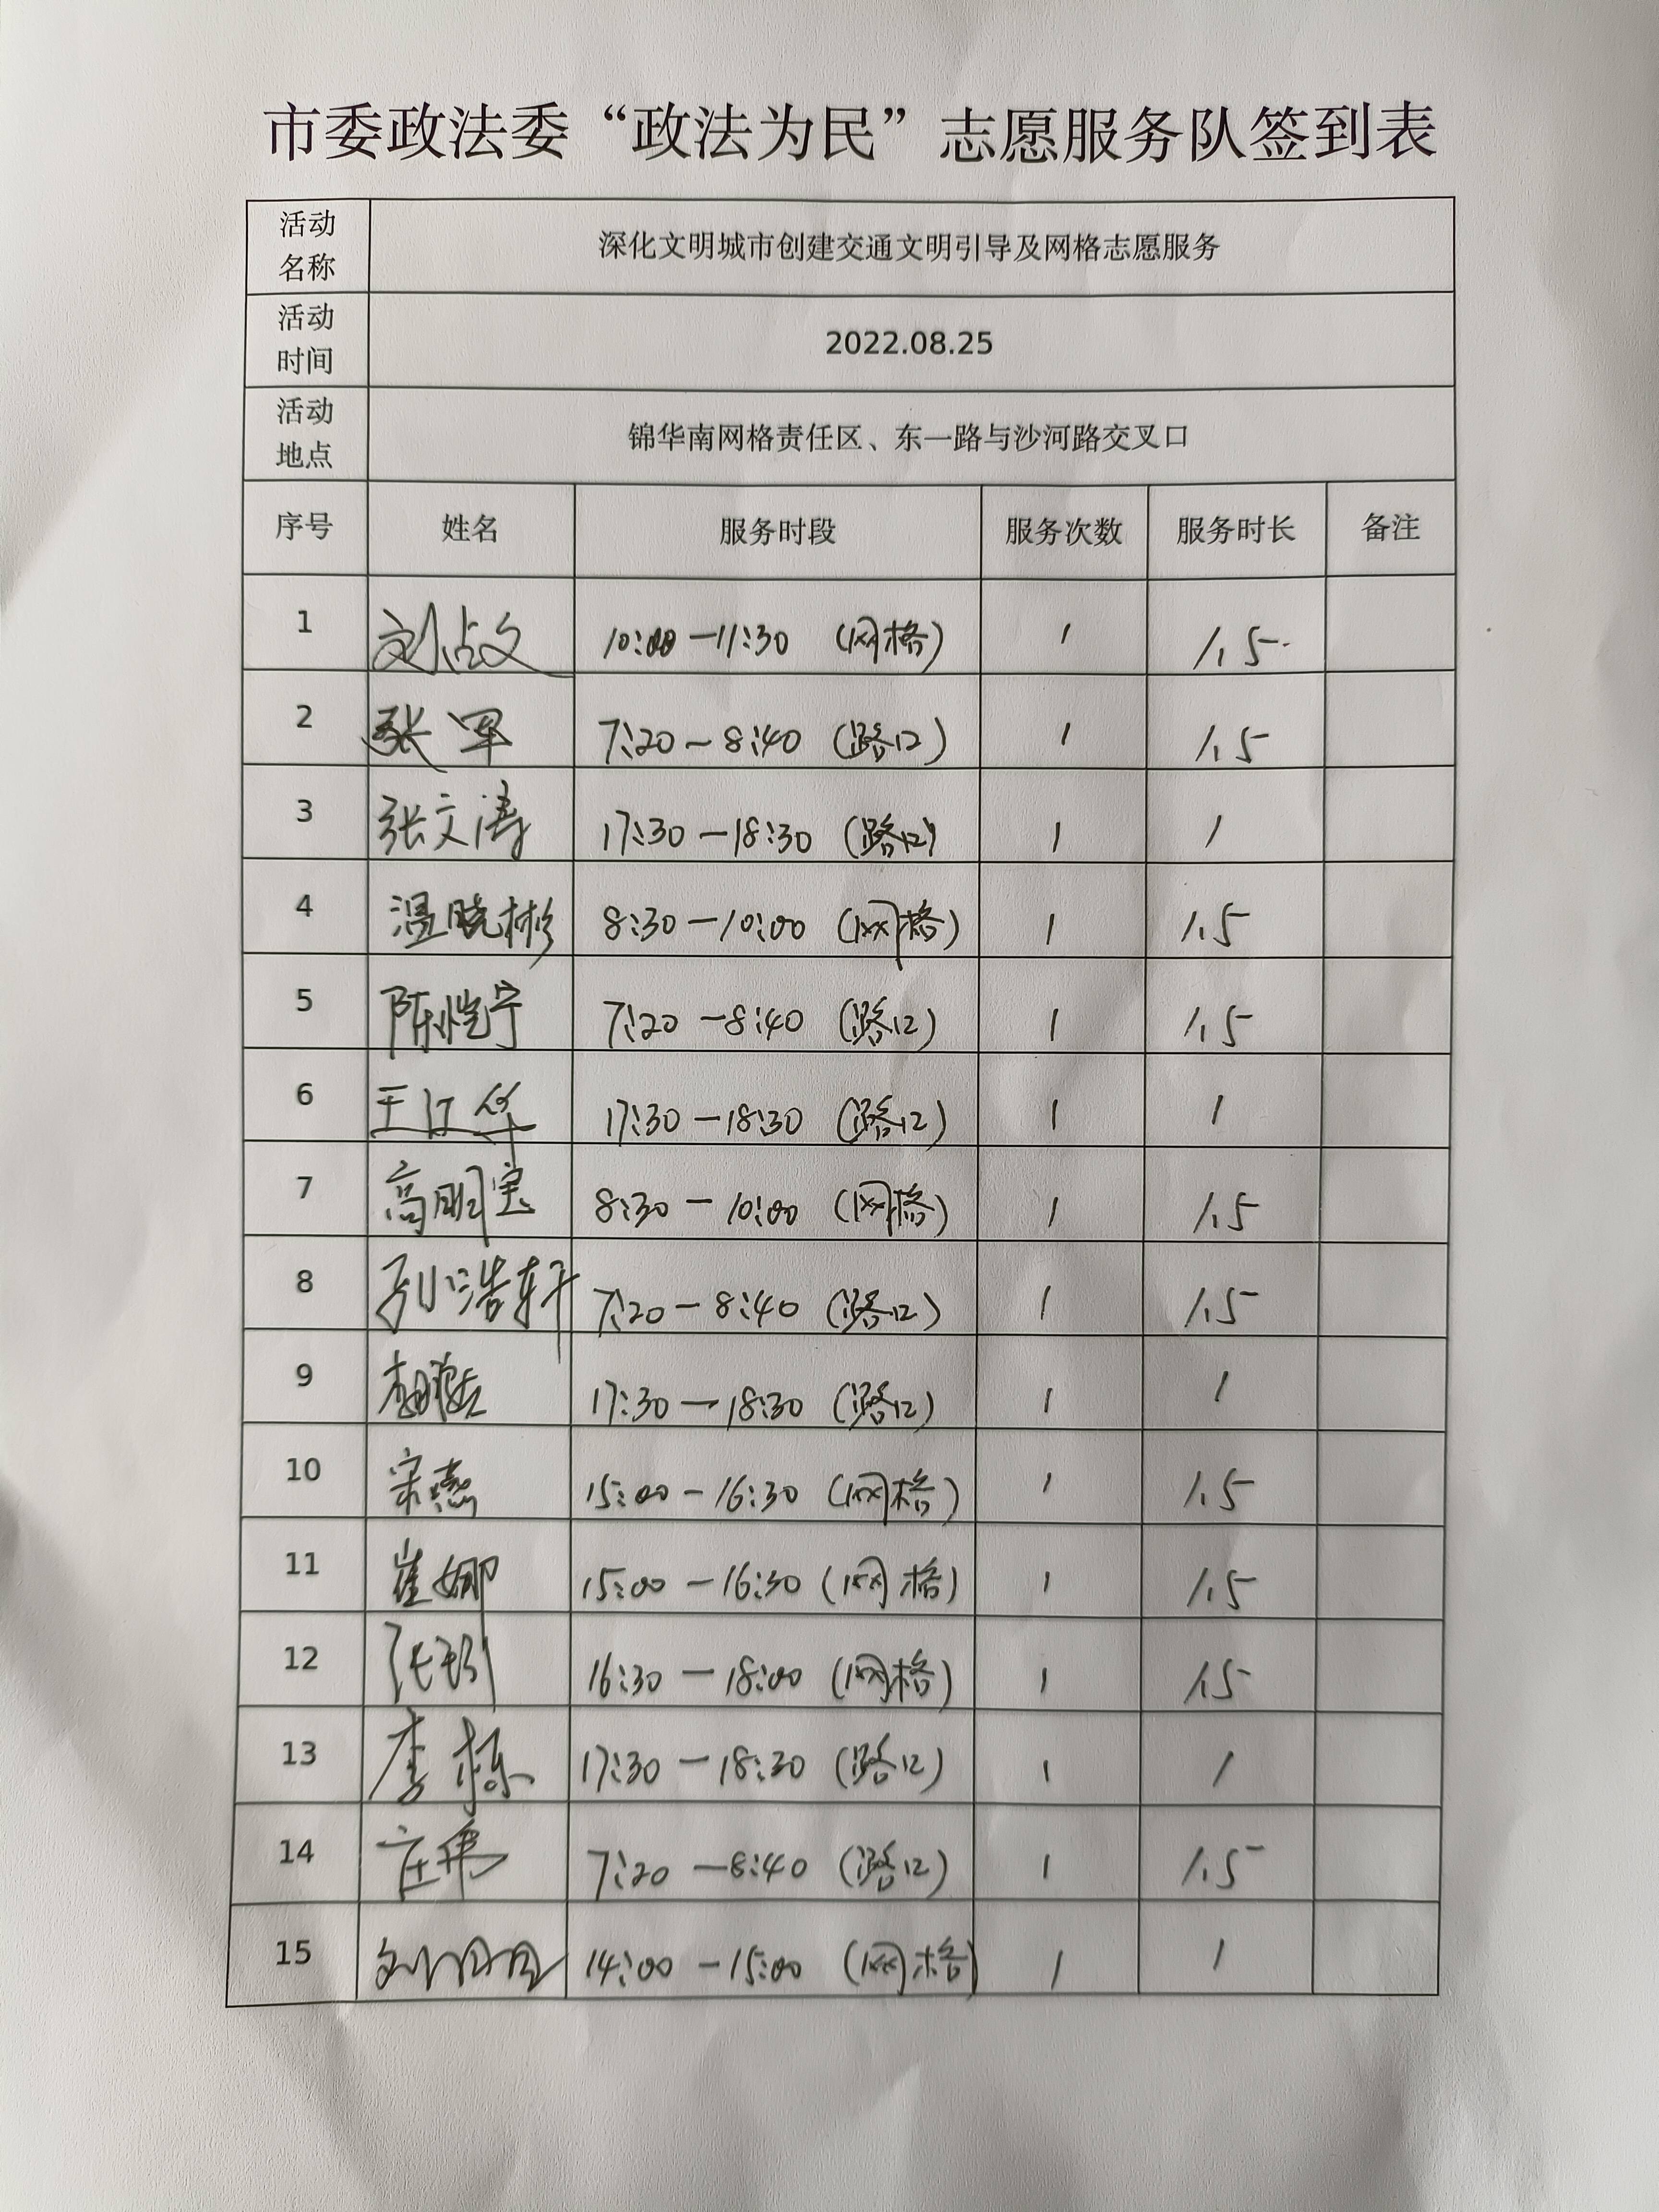 市委政法委“政法为民”志愿服务队签到表
活动名称 深化文明城市创建交通文明引导及网格志愿服务
活动时间 2022.08.25
活动地点 锦华南网格责任区、东一路与沙河路交叉口
序号 姓名 服务时段 服务次数 服务时长 备注
1 刘占文 10:00—11:30 (网格) 1 1.5
2 张军 7:20~8:40 (路口) 1 1.5
3 张文涛 17:30—18:30 (路口) 1 1
4 温晓彬 8:30—10:00 (网格) 1 1.5
5 陈恺宁 7:20—8:40 (路口) 1 1.5
6 王江华 17:30—18:30 (路口) 1 1
7 高明宝 8:30—10:00 (网格) 1 1.5
8 孙浩轩 7:20—8:40 (路口) 1 1.5
9 17:30—18:30 (路口) 1 1
10 15:00—16:30 (网格) 1 1.5
11 崔娜 15:00—16:30 (网格) 1 1.5
12 16:30—18:00 (网格) 1 1.5
13 李栋 17:30—18:30 (路口) 1 1
14 庄伟 7:20—8:40 (路口) 1 1.5
15 14:00—15:00 (网格) 1 1